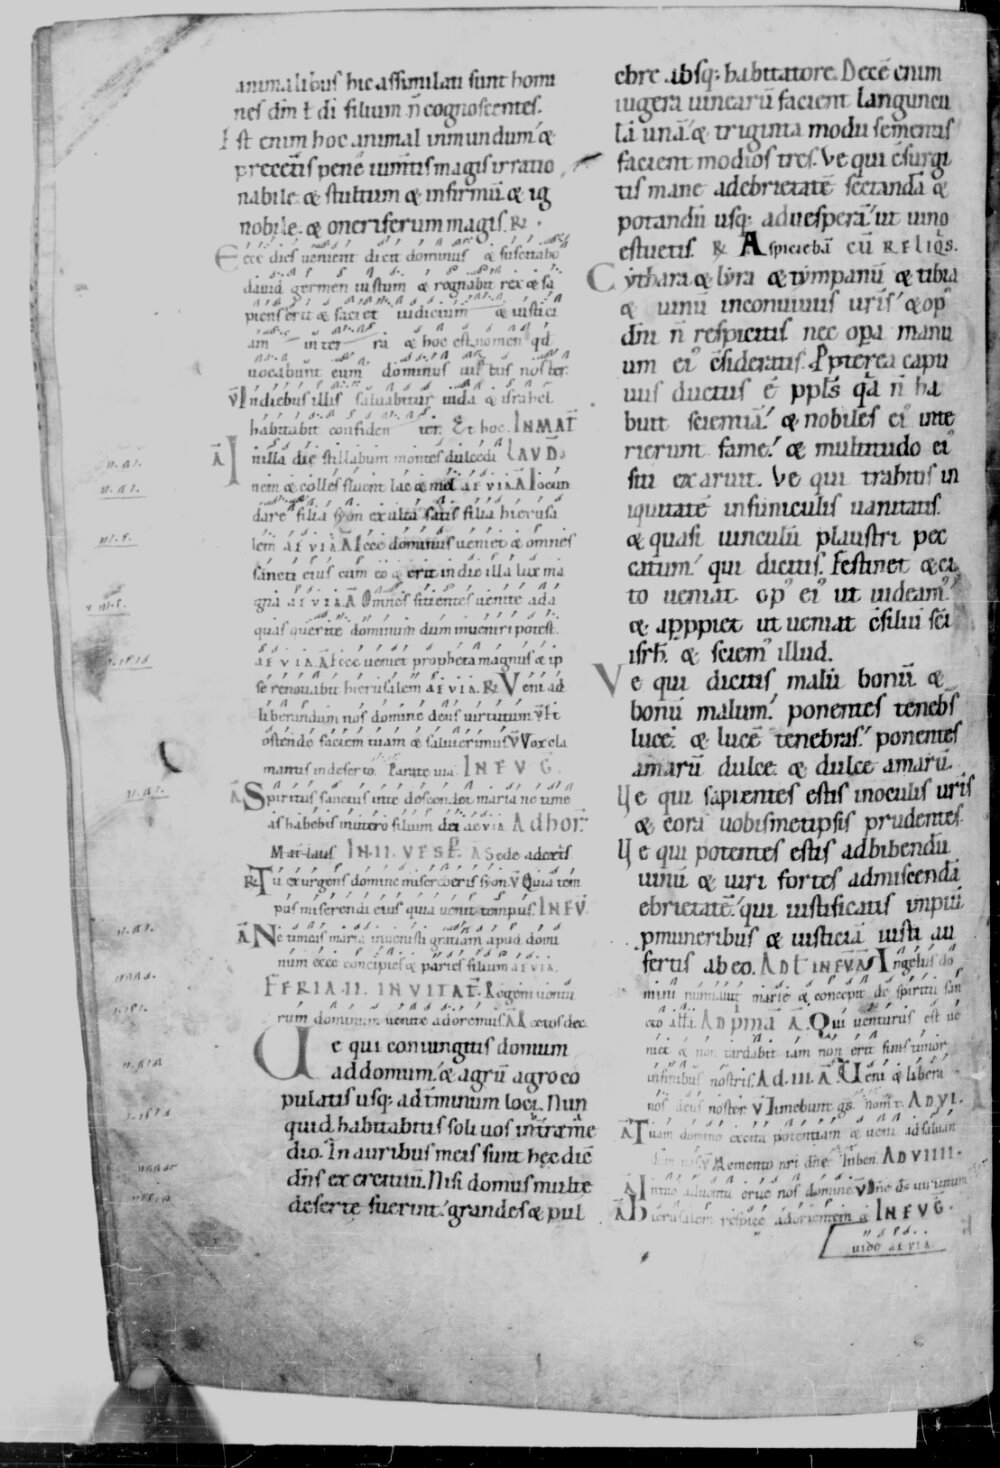 animalibus hic assimilati sunt homi
nes dm̄ ł di filium n̄ cognoscentes.
Est enim hoc animal inmundum᷒ &
pre cet̄is pene ium̄tis magis irratio
nabile. & stultum & infirmū. & ig
nobile. & oneriferum magis. R̄.
Ecce dies uenient dicit dominus & suscitabo
dauid germen iustum & regnabit rex & sa
piens erit & faciet iudicium & iustici
am in ter ra & hoc est nomen qd̄
uocabunt eum dominus iustus noster.
V̄ In diebus illis saluabitur iuda & israhel
habitabit confiden ter. Et hoc. IN MAT̄
Ā In illa die stillabunt montes dulcedi LAVD̄.
nem & colles fluent lac & mel AEVIA. Ā Iocun
dare filia syon exulta satis filia hierusa
lem AEVIA Ā Ecce dominus ueniet & omnes
sancti eius cum eo & erit in die illa lux ma
gna AEVIA Ā Omnes sitientes uenite ad a
quas querite dominum dum inueniri potest.
AEVIA. Ā Ecce ueniet propheta magnus & ip
se renouabit hierusalem AEVIA. R̄ Veni ad
liberandum nos domine deus uirtutum V̄ Et
ostende faciem tuam & salui erimus V̄ Vox cla
mantis in deserto. Parate uiā. IN EVḠ.
Ā Spiritus sanctus in te descendet maria ne time
as habebis in utero filium dei aevia. Ad hor̄.
Mat laus. IN II. VESP̄. Ā Sede a dextris.
R̄ Tu exurgens domine misereberis syon. V̄ Quia tem
pus miserendi eius quia uenit tempus. IN EV̄.
Ā Ne timeas maria inuenisti gratiam apud domi
num ecce concipies & paries filium AEVIA.
FERIA. II. INVITAT̄. Regem uentu
rum dominum uenite adoremus. Ā A. Ecce ios dec.
Ue qui coniungitis domum
ad domum᷒ & agrū agro co
pulatis usq; ad t̄minum loci. Nun
quid habitabitis soli uos in tr̄a me
dio. In auribus meis sunt hęc diē
dn̄s exercituū. Nisi domus multe
deserte fuerint᷒ grandes & pul
chre absq; habitatore. Decē enim
iugera uinearū facient laguncu
lā unā᷒ & triginta modii sementis
facient modios tres. Ve qui c̄surgi
tis mane ad ebrietatē sectandā &
potandū usq; ad uesperā᷒ ut uino
estuetis. R̄ Aspiciebā CŪ RELIQS.
Cythara & lyra & tympanū & tibia
& uinū in conuiuiis uris᷒ & op̄
dn̄i n̄ respicitis nec opa manu
um ei᷒ c̄sideratis. Ppterea capti
uus ductus ē pp̄ls qa n̄ ha
buit scientiā᷒ & nobiles ei᷒ inte
rierunt fame᷒ & multitudo ei᷒
siti exaruit. Ve qui trahitis in
iquitatē in funiculis uanitatis.
& quasi uinculū plaustri pec
catum᷒ qui dicitis. Festinet & ci
to ueniat op᷒ ei᷒ ut uideam᷒.
& appiet ut ueniat c̄siliū sc̄i
isrl̄. & sciem᷒ illud.
Ve qui dicitis malū bonū &
bonū malum᷒ ponentes tenebs
lucē. & lucē tenebras᷒ ponentes
amarū dulce. & dulce amarū.
Ve qui sapientes estis in oculis uris
& corā uobismetipsis prudentes.
Ve qui potentes estis ad bibendū
uinū & uiri fortes ad miscendā
ebrietatē᷒ qui iustificatis impiū
p muneribus & iusticiā iusti au
fertis ab eo. ADT̄ IN EV̄ Ā Angelus do
mini nuntiauit marie & concepit de spiritu san
cto aƚƚa. AD pimā Ā. Qui uenturus est ue
niet & non tardabit iam non erit timor
in finibus nostris. Ad. III. Ā. Veni & libera
nos deus noster V̄ Timebunt gs. nom̄ t. AD VI.
Ā Tuam domine excita potentiam & ueni ad saluan
dum nos V̄ Memento nri dn̄e In ben. AD VIIII.
Ā In tuo aduentu erue nos domine V̄ Dn̄e ds uirtutum
Ā Hierusalem respice ad orientem & IN EVḠ.
uide AEVIA